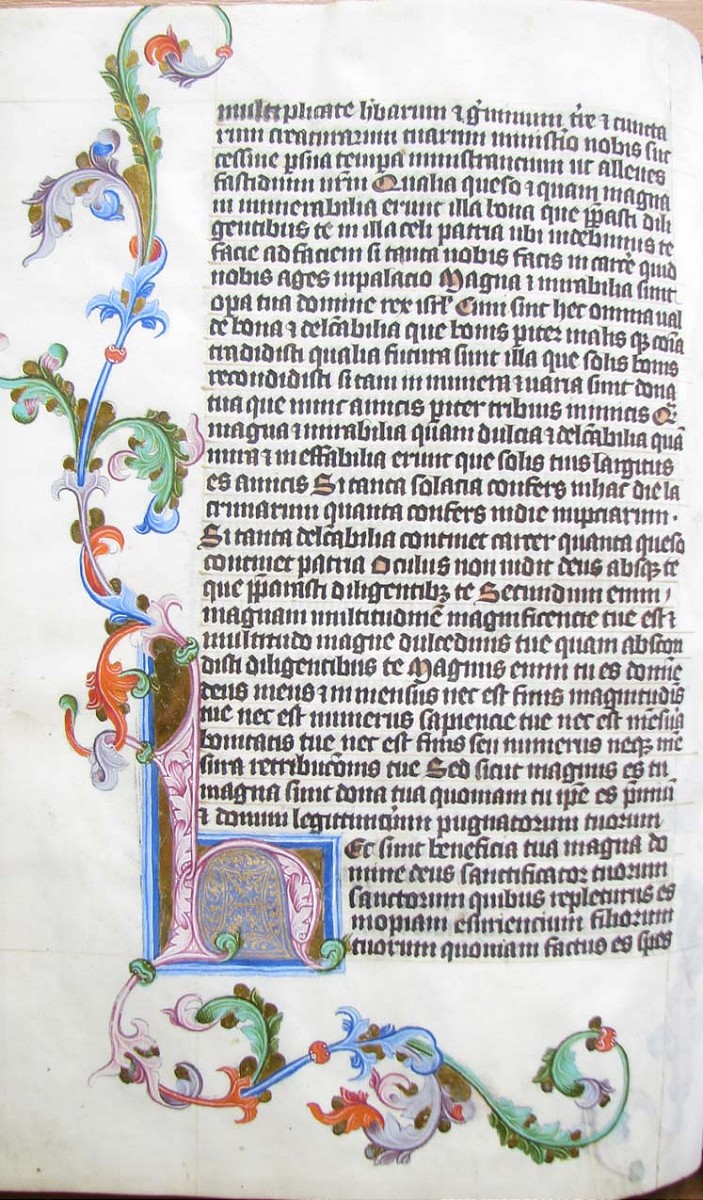 multiplicate h̄barum ⁊ g̃minum t̄re ⁊ cuncta
rum creaturarum tuarum ministr̄io nobis suc
cessiue ꝑ sua tempa ministrantium ut alleues
fastidium nr̄m Qualia queso ⁊ quam magna
in numerabilia erunt illa bona que p̄pasti dili
gentibus te in illa celi patria ubi uidebimus te
facie ad faciem si tanta nobis facis in carc̄e quid
nobis ages in palacio Magna ⁊ mirabilia sunt
oꝑa tua domine rex ist̃ Cum sint hec omnia ual
de bona ⁊ delc̄abilia que bonis pīter malis qꝫ com̄ia
tradidisti qualia futura sunt illa que solis bonis
recondidisti si tam in numera ⁊ uaria sunt dona
tua que nunc amicis pīter tribuis inimicis Q̄
magna ⁊ mirabilia quam dulcia ⁊ delc̄abilia quā
mira ⁊ in effabilia erunt que solis tuis largitus
es amicis Si tanta solacia confers in hac die la
crimarum quanta confers in die nupciarum ·
Si tanta delc̄abilia continet carcer quanta queso
continet patria Oculus non uidit deus absqꝫ te
que p̄parasti diligentibꝫ te Secundum enim
magnam multitudinē magnificencie tue est ⁊
multitudo magne dulcedinis tue quam abscon
disti diligentibus te Magnus enim tu es domīe
deus meus ⁊ in mensus nec est finis magnitudīs
tue nec est numerus sapiencie tue nec est mēsura
bonitatis tue nec est finis seu numerus neqꝫ mē
sura retribuc̄onis tue Sed sicut magnus es tu
magna sunt dona tua quoniam tu ip̄e es p̄miū
⁊ donum legittimor̄um pugnatorum tuorum
hEc sunt beneficia tua magna do
mine deus sanctificator tuorum
sanctorum quibus repleturus es
inopiam esuriencium filiorum
tuorum quoniam factus es spes